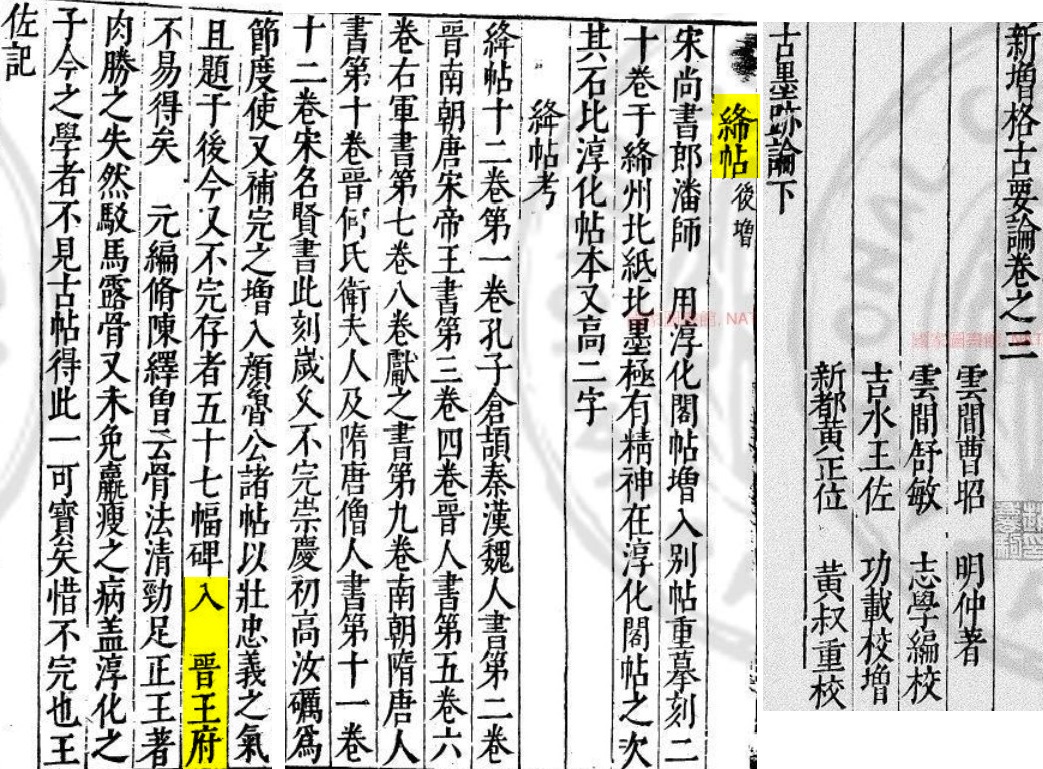 新增格古要論卷之三
雲間曹昭　明仲著
雲間舒敏　志學編校
吉水王佐　功載校增
新都黃正位　黃叔重校
古墨跡論下
絳帖 後增
宋尚書郎潘師　用淳化閣帖增入别帖重摹刻二
十卷于絳州北紙北墨極有精神在淳化閣帖之次
其石比淳化帖本又高二字
絳帖考
絳帖十二卷第一卷孔子倉頡秦漢魏人書第二卷
晉南朝唐宋帝王書第三卷四卷晉人書第五卷六
卷右軍書第七卷八卷獻之書第九卷南朝隋唐人
書第十卷晉何氏衛夫人及隋唐僧人書第十一卷
十二卷宋名賢書此刻歲久不完崇慶初高汝礪爲
節度使又補完之增入顔魯公諸帖以壯忠義之氣
且題于後今又不完存者五十七幅碑入　晉王府
不易得矣　元編脩陳繹曾云骨法清勁足正王著
肉勝之失然駁馬露骨又未免羸瘦之病盖淳化之
子今之學者不見古帖得此一可寳矣惜不完也王
佐記